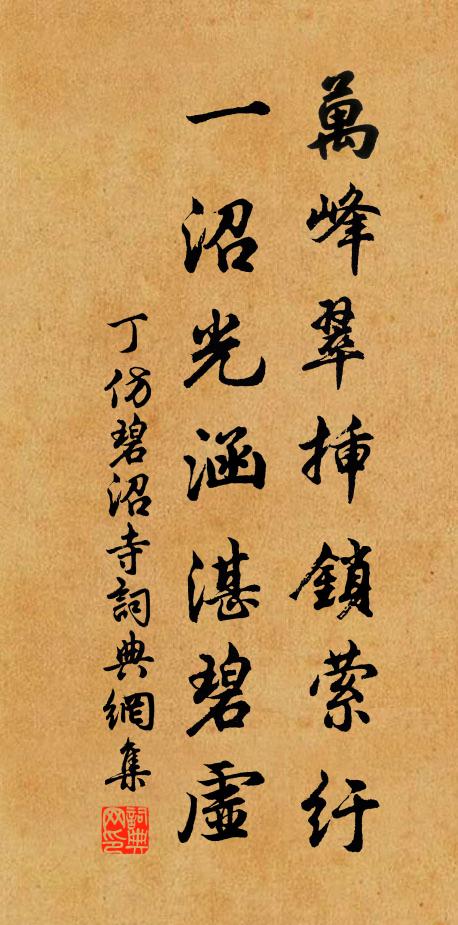 萬峰翠挿鎖縈紆
一沼光涵湛碧虛
丁仿碧沼寺詞典網集
詞典网印